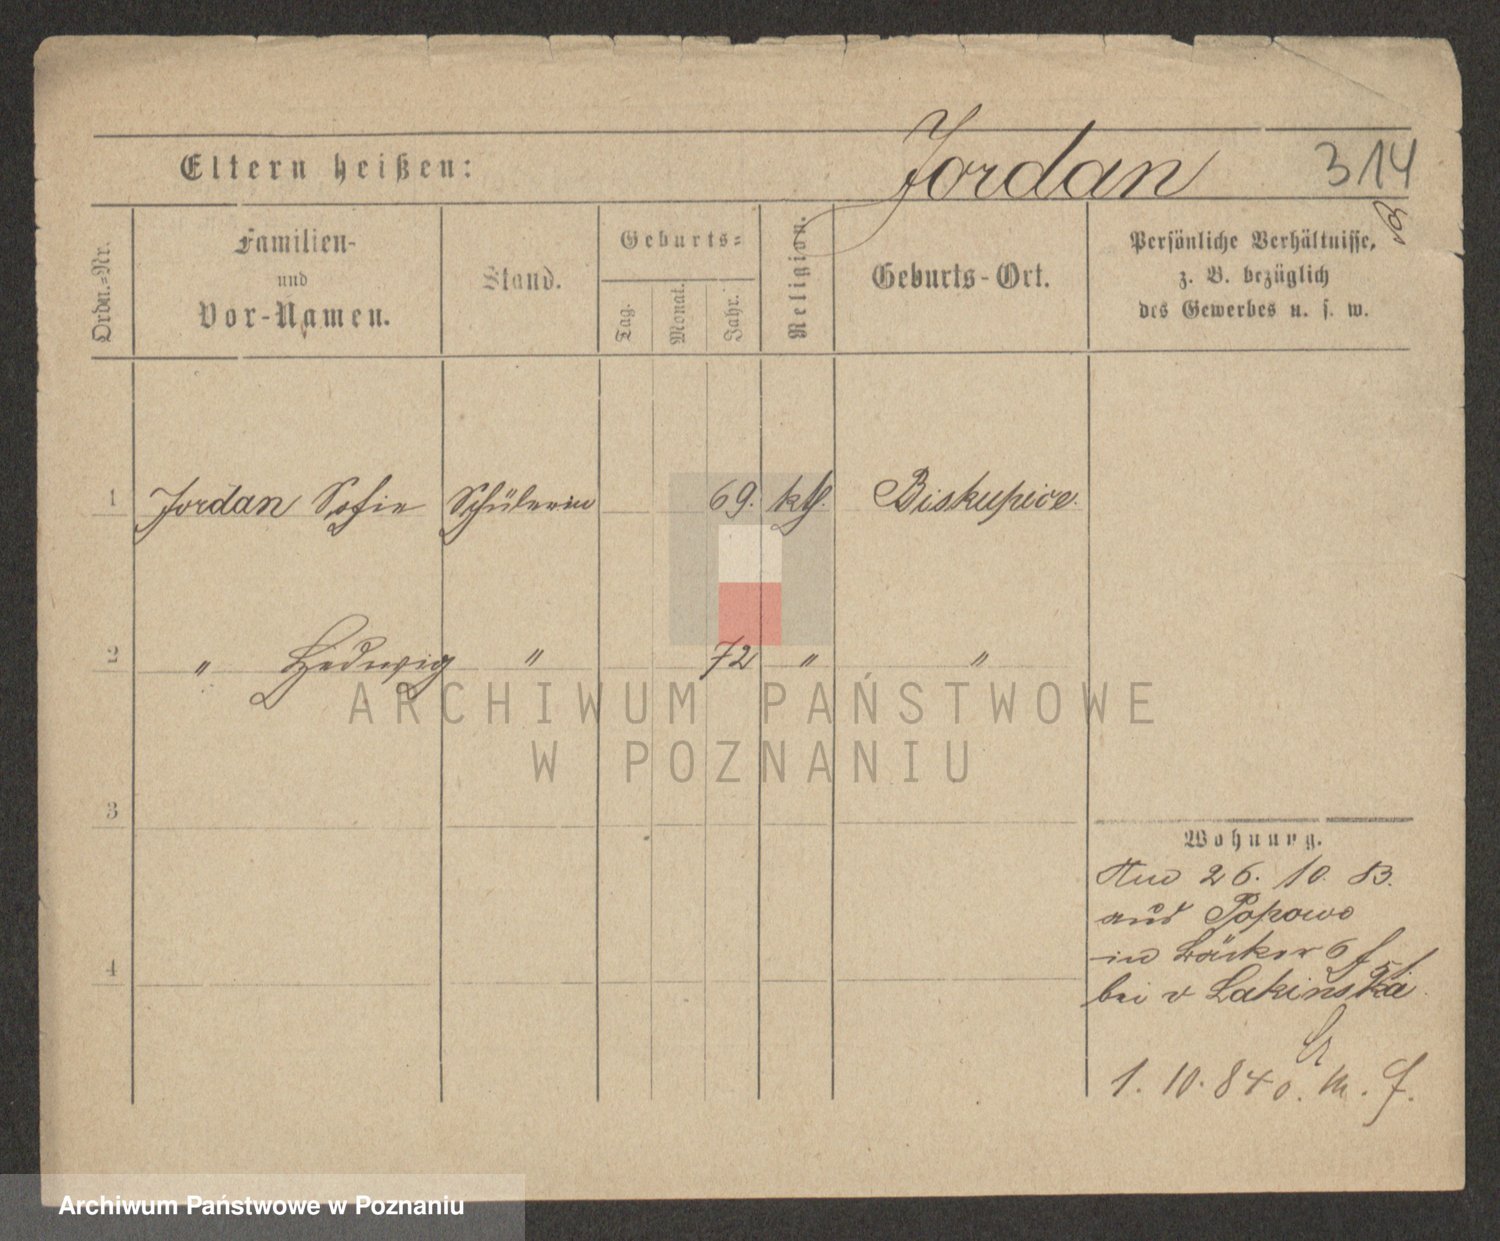 Eltern heißen:
Jordan
314
Ordn.-Nr.
Familien-
und
Vor-Namen.
Stand.
Geburts-
Tag.
Monat.
Jahr.
Religion.
Geburts-Ort.
Persönliche Verhältnisse,
z. B. bezüglich
des Gewerbes u. s. w.
1 Jordan Sofie Schülerin 69. kth. Biskupice.
2 " Hedwig " 72 " "
3
4
Wohnung.
26. 10. 83.
aus Popowo
in Bäcker 6
bei v Lakinska
1. 10. 84 o. M. f.
ARCHIWUM PAŃSTWOWE
W POZNANIU
Archiwum Państwowe w Poznaniu